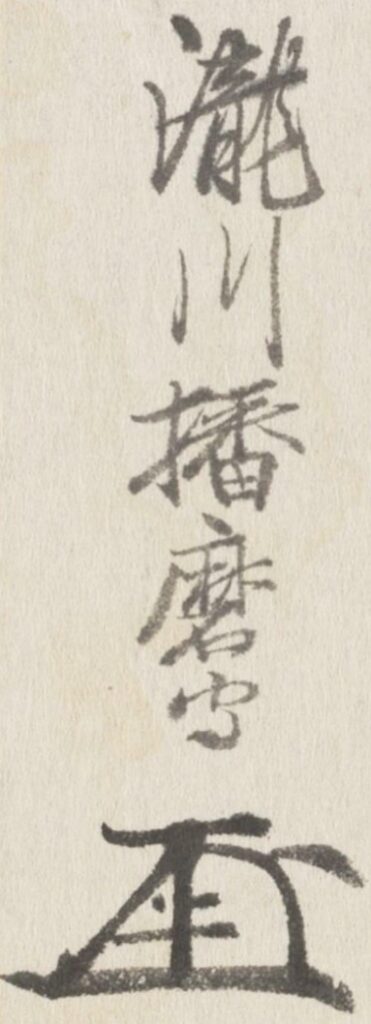 瀧川播磨守